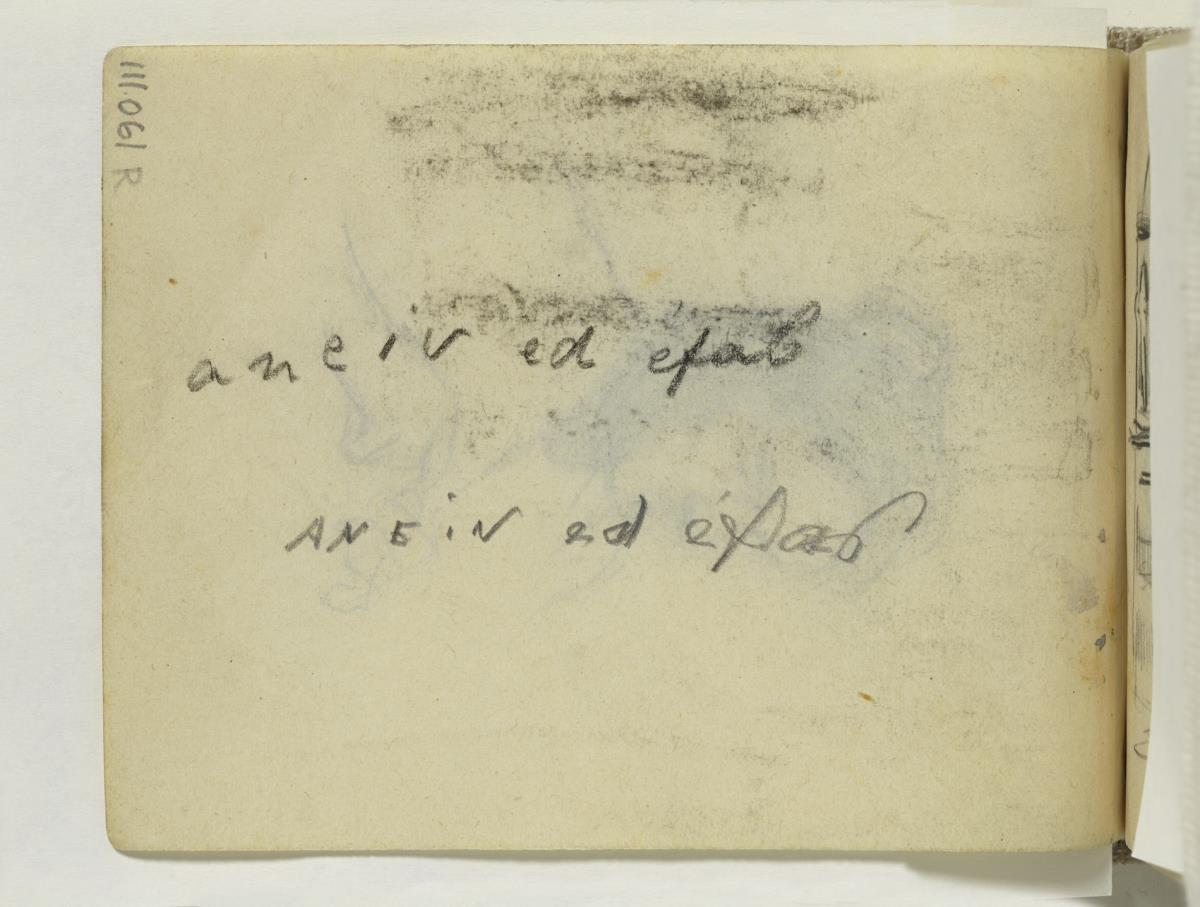 111.061 R
aneiv ed éfac
ANEiV ed éfac